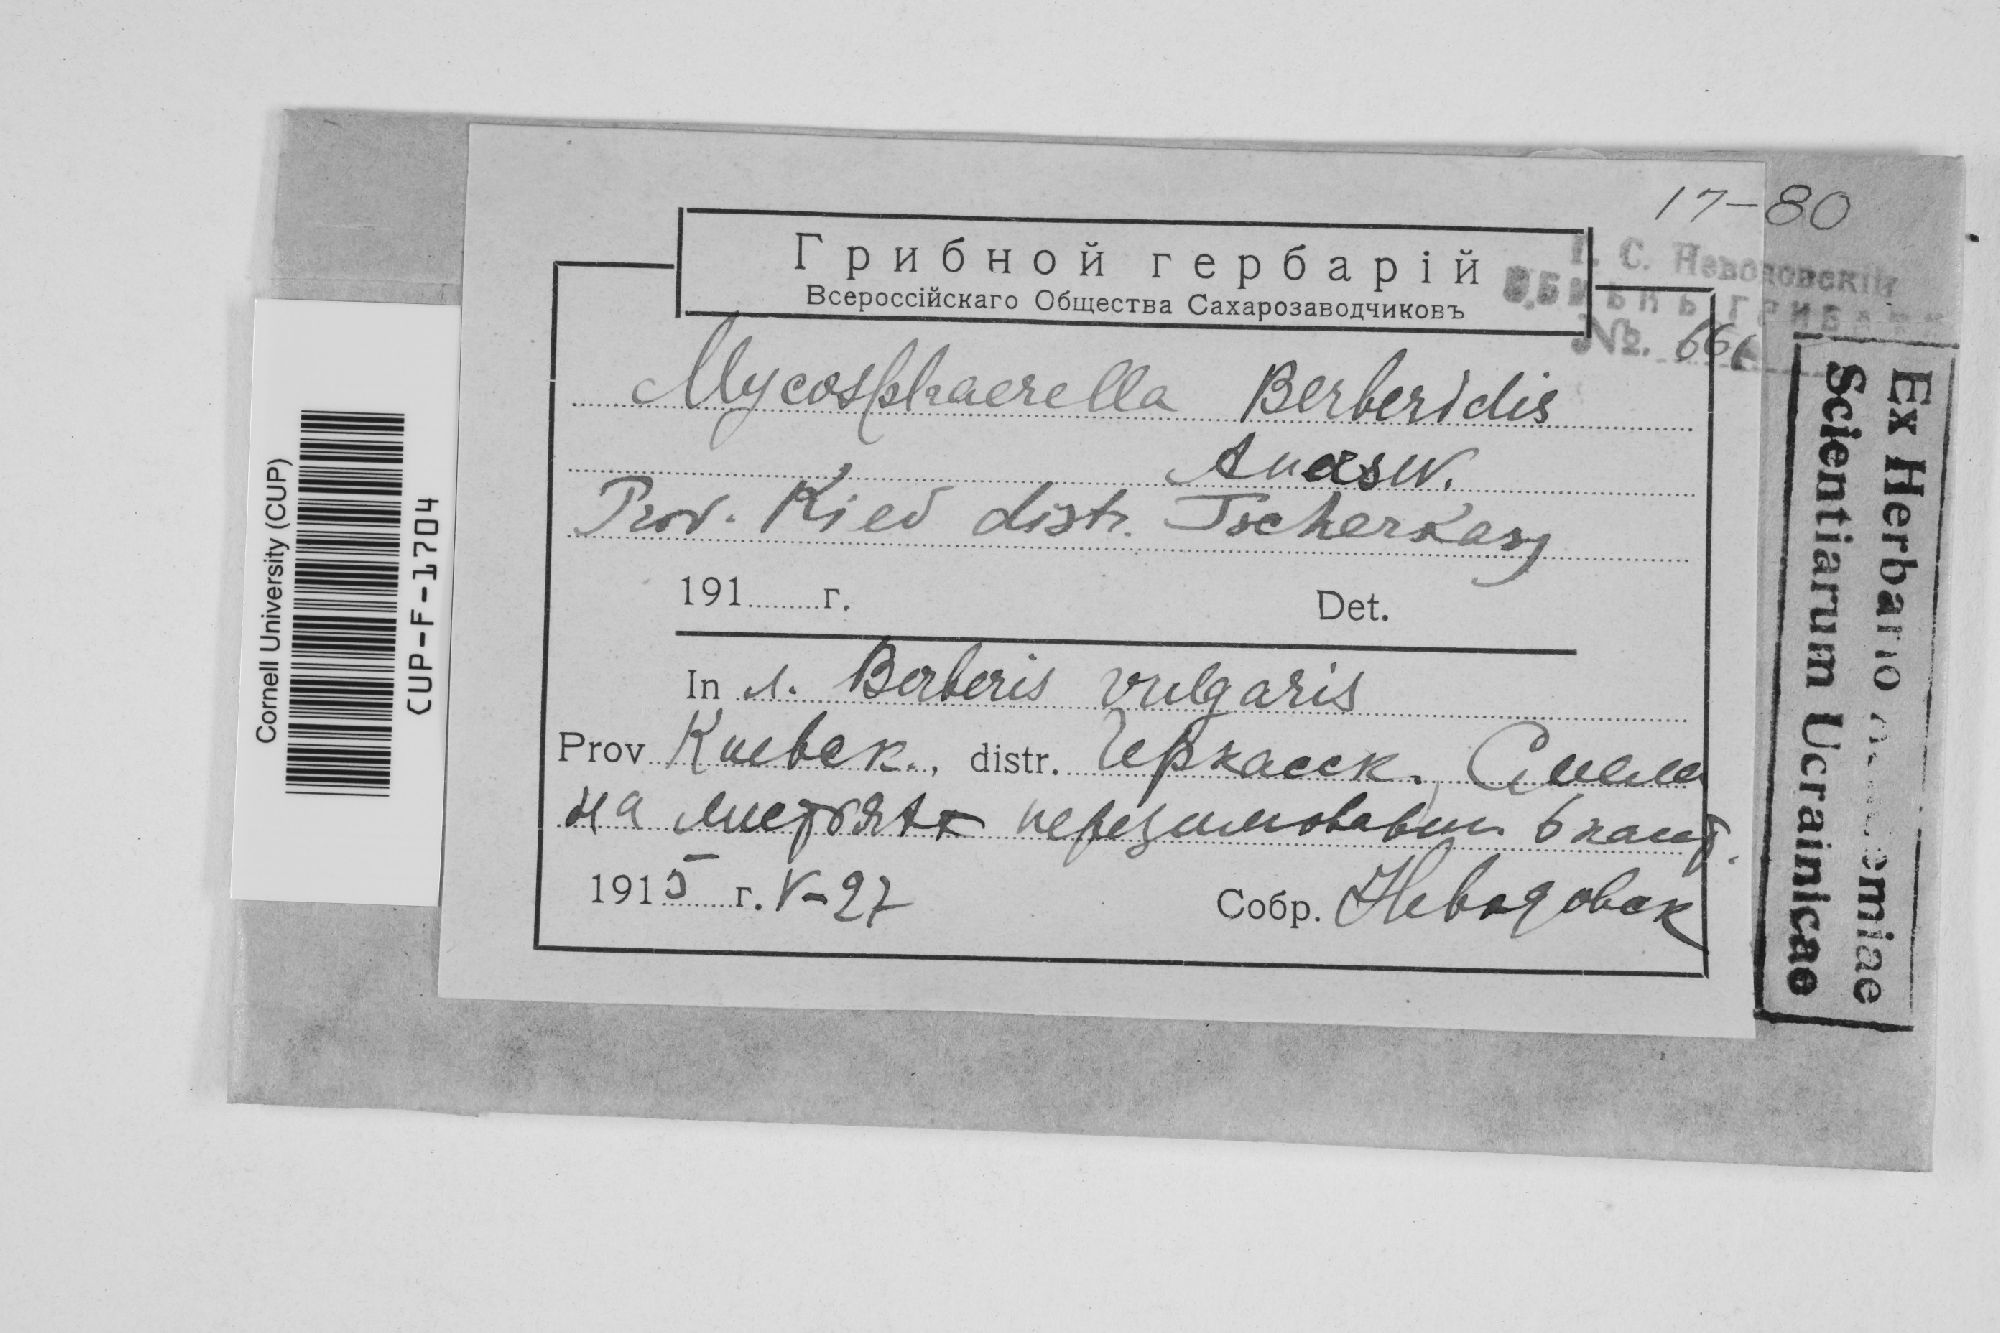 17-80
Грибной гербарій
Всероссійскаго Общества Сахарозаводчиковъ
Г. С. Неводовскій
№. 666
Mycosphaerella Berberidis
Auersw.
Prov. Kiev distr. Tscherkasy
191 г.
Det.
In л. Berberis vulgaris
Prov Киевск., distr. Черкасск. Смела
на листьях перезимовавш.
1915 г. V-27
Собр. Неводовск
Ex Herbario Academiae
Scientiarum Ucrainicae
Cornell University (CUP)
CUP-F-1704